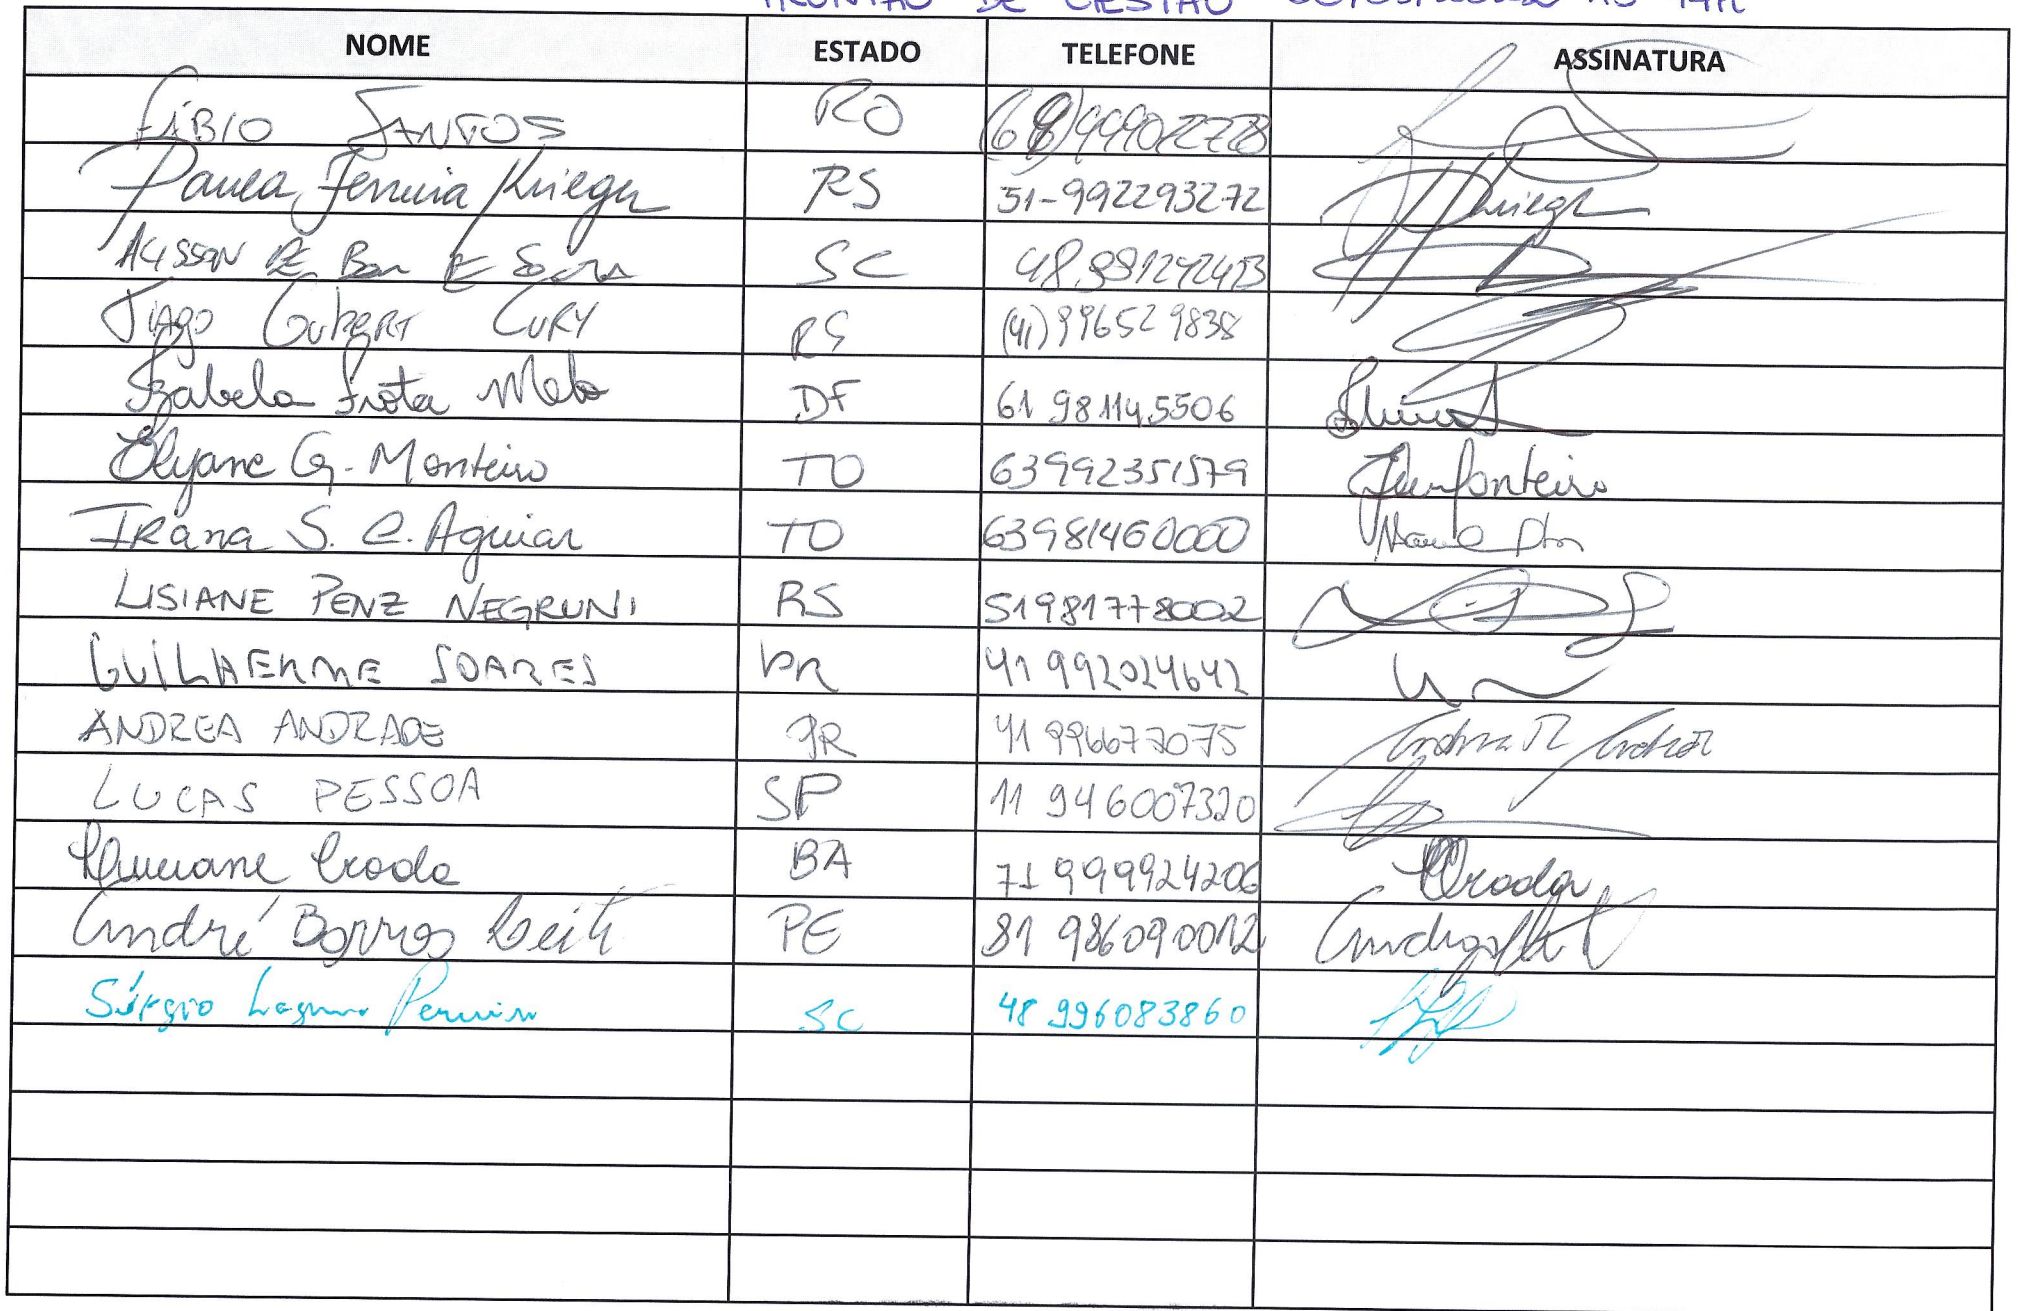 DE GESTÃO
NOME ESTADO TELEFONE ASSINATURA
FÁBIO SANTOS RO
Paula Ferreira Krieger RS 51-992293272 Krieger
ALISSON DE SC
TIAGO CURY RS (41) 996529838
Izabela Frota Melo DF 61 981145506
Elyane G. Monteiro TO 63992351579
IRana S. C. Aguiar TO 63981460000
LISIANE PENZ NEGRUNI RS 51981778002
GUILHERME SOARES PR 41 992024642
ANDREA ANDRADE PR 41 996677075
LUCAS PESSOA SP 11 946007320
Luciane Croda BA 71 999924206 Croda
André Barros Leite PE 81 986090012
Sérgio SC 48 996083860